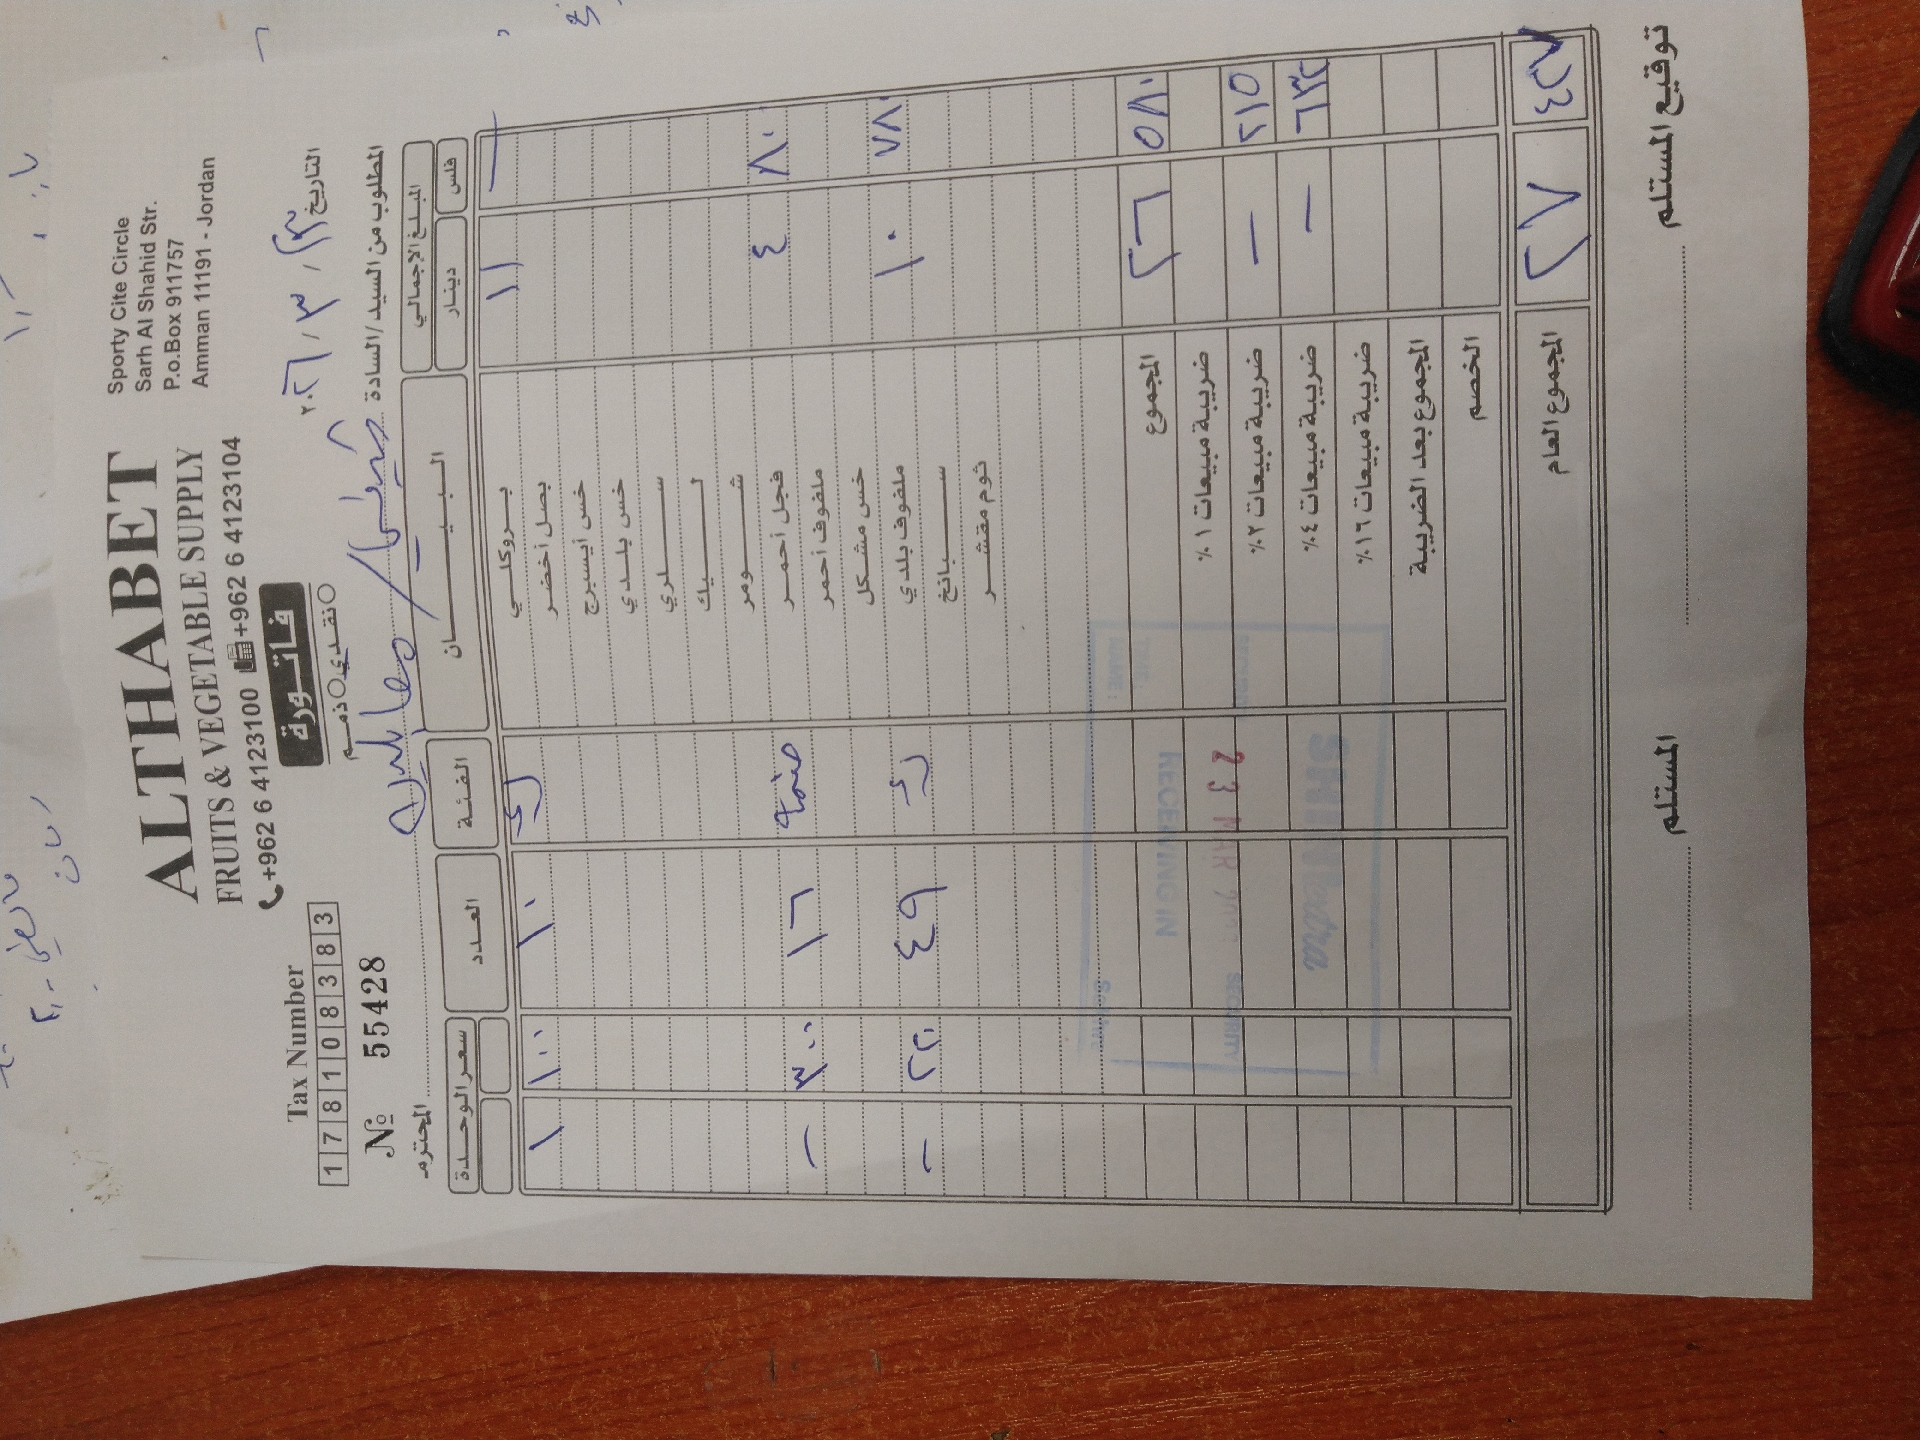 ALTHABET
FRUITS & VEGETABLE SUPPLY
+962 6 4123100 +962 6 4123104
Sporty Cite Circle
Sarh Al Shahid Str.
P.o.Box 911757
Amman 11191 - Jordan
Tax Number
178108383
№ 55428
فاتورة
ذمم نقدي
التاريخ ٢٣ / ٣ / ٢٠٢٦
المطلوب من السيد / السادة
المحترم
المبلغ الإجمالي البيان الفئة العدد سعر الوحدة
فلس دينار
— ١١ بروكلي ١٠ ١٠٠ ١
بصل أخضر
خس أيسبرج
خس بلدي
سلري
ليك
شومر
٨٠٠ ٤ فجل أحمر ١٦ ٣٠٠ —
ملفوف أحمر
خس مشكل
٧٨٠ ١٠ ملفوف بلدي ٤٩ ٢٢٠ —
سبانخ
ثوم مقشر
٥٨٠ ٢٦ المجموع
ضريبة مبيعات ١٪
٢١٥ — ضريبة مبيعات ٢٪
٦٣٢ — ضريبة مبيعات ٤٪
ضريبة مبيعات ١٦٪
المجموع بعد الضريبة
الخصم
٤٢٧ ٢٧ المجموع العام
RECEIVING IN
23 MAR
المستلم
توقيع المستلم